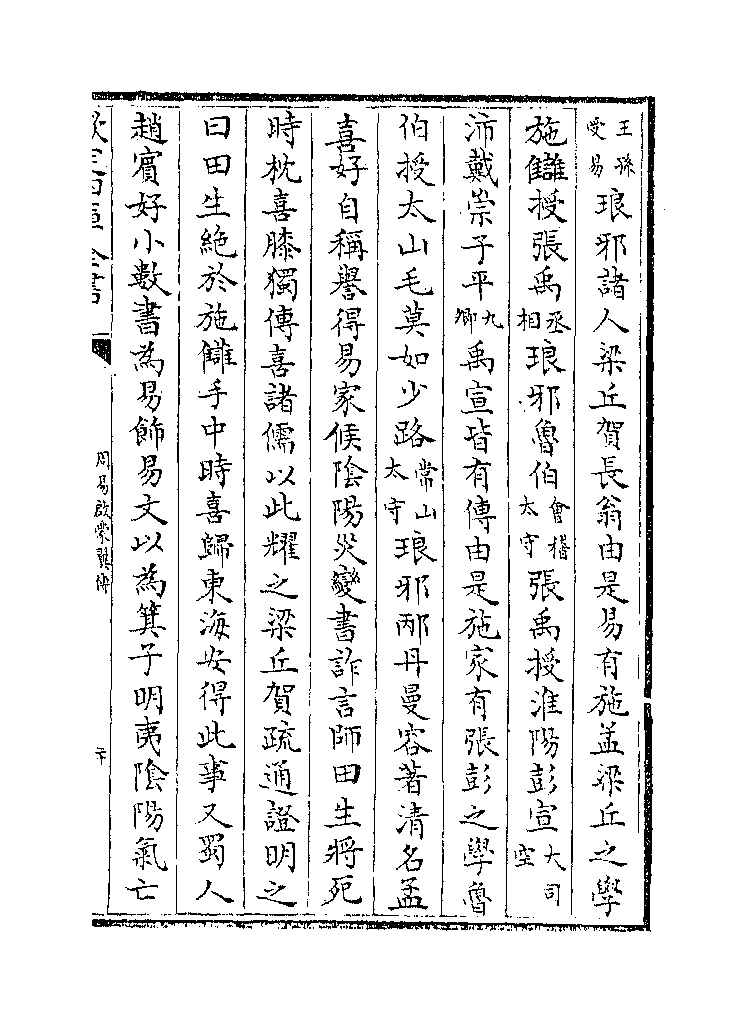 王孫受易琅邪諸人梁丘賀長翁由是易有施孟梁丘之學
施讎授張禹丞相琅邪魯伯會稽太守張禹授淮陽彭宣大司空
沛戴崇子平九卿禹宣皆有傳由是施家有張彭之學魯
伯授太山毛莫如少路常山太守琅邪邴丹曼容著清名孟
喜好自稱譽得易家候隂陽災變書詐言師田生將死
時枕喜膝獨傳喜諸儒以此耀之梁丘賀疏通證明之
曰田生絶於施讎手中時喜歸東海安得此事又蜀人
趙賓好小數書為易飾易文以為箕子明夷隂陽氣亡
欽定四庫全書
周易啟蒙翼傳
二十